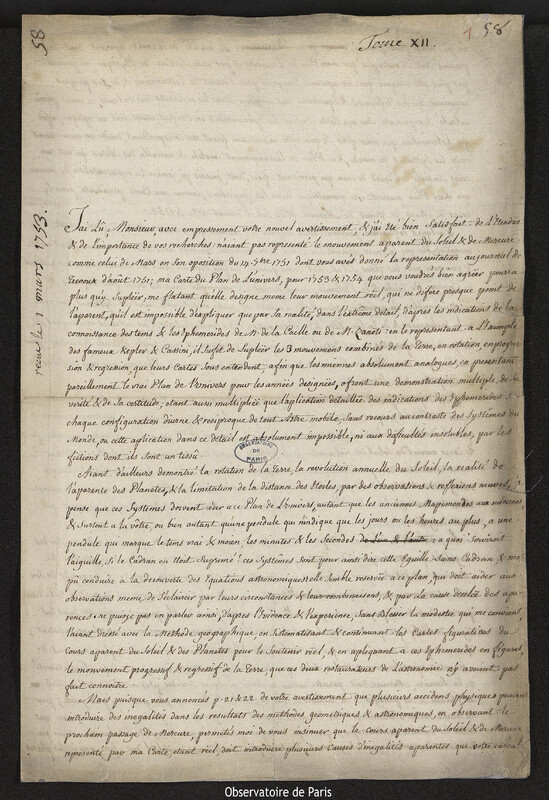 58
Tome XII.
1 58
recue le 1 mars 1753.
J'ai Lû, Monsieur, avec empressement votre nouvel avertissement, & j'ai été bien Satisfait de L'étendue
& de l'importance de vos recherches: n'aiant pas representé le mouvement aparent du Soleil & de Mercure
comme celui de Mars en Son oposition du 14 7bre 1751 dont vous avés donné la representation au journal de
Trevoux d'août 1751; ma Carte du Plan de L'univers, pour 1753 & 1754 que vous voudrés bien agréer pourra
plus qu'y Supléer, me flatant qu'elle designe meme leur mouvement réel, qui ne difere presque point de
l'aparent, qu'il est impossible d'expliquer que par Sa realité, dans l'extrême detail, d'après les indications de la
connoissance des tems & les Ephemerides de Mr. de la Caille ou de Mr. Zanoti: en le representant à L'exemple
des fameux Kepler & Cassini, il Sufit de Supléer les 3 mouvemens combinés de la Terre, en rotation en progres-
sion & regression, que leurs Cartes Sous entendent; afin que les mêmes absolument analogues, en presentant
pareillement le vrai Plan de L'Univers pour les années designées, ofrent une demonstration multiple de la
verité & de Sa certitude; étant aussi multiplicé que l'aplication detaillée des indications des Ephemerides
chaque configuration diurne & reciproque de tout Astre mobile, Sans recours au contraste des Systèmes du
Monde, ou cette aplication dans ce detail est absolument impossible, ni aux dificultés insolubles, par les
fictions dont ils Sont un tissu.
Aiant d'ailleurs demontré la rotation de la Terre, la revolution annuelle du Soleil, la realité de
l'aparente des Planétes, & la limitation de la distance des étoiles, par des observations & reflexions neuves, je
pense que ces Systèmes doivent ceder à ce Plan de L'Univers, autant que les anciennes Mappemondes aux
& Surtout à la vôtre, ou bien autant qu'une pendule qui n'indique que les jours ou les heures au plus, à une
pendule qui marque le tems vrai & moien, les minutes & les Secondes: à quoi Serviroit
l'aiguille, Si le Cadran en étoit Suprimé? ces Systèmes Sont pour ainsi dire cette Eguille Sans Cadran & n'ont
pû conduire à la decouverte des Equations astronomiques: elle Semble reservée à ce plan, qui doit aider aux
observations meme de S'éclaircir par leurs circonstances & leur combinaisons, & par La cause decelée des apa-
rences: ne puis je pas en parler ainsi, d'après l'Evidence & l'experience, Sans Blesser la modestie qui me convient,
l'aiant dressé avec la Methode geographique, en Sistematisant & continuant les Cartes figuratives du
Cours aparent du Soleil & des Planétes pour le Soutenir réel, & en apliquant à ces Ephemerides en figures,
le mouvement progressif & regressif de la Terre, que ces deux restaurateurs de L'astronomie n'y avoient pas
fait connoitre.
Mais puisque vous annoncés p. 21 & 22 de votre avertissement que plusieurs accidens physiques peuvent
introduire des inegalités dans les resultats des methodes geometriques & astronomiques, en observant le
prochain passage de Mercure, permettés moi de vous insinuer que le cours aparent du Soleil & de Mercure
representé par ma Carte, etant réel, doit introduire plusieurs Causes d'inégalités aparentes que votre
OBSERVATOIRE DE PARIS
Observatoire de Paris